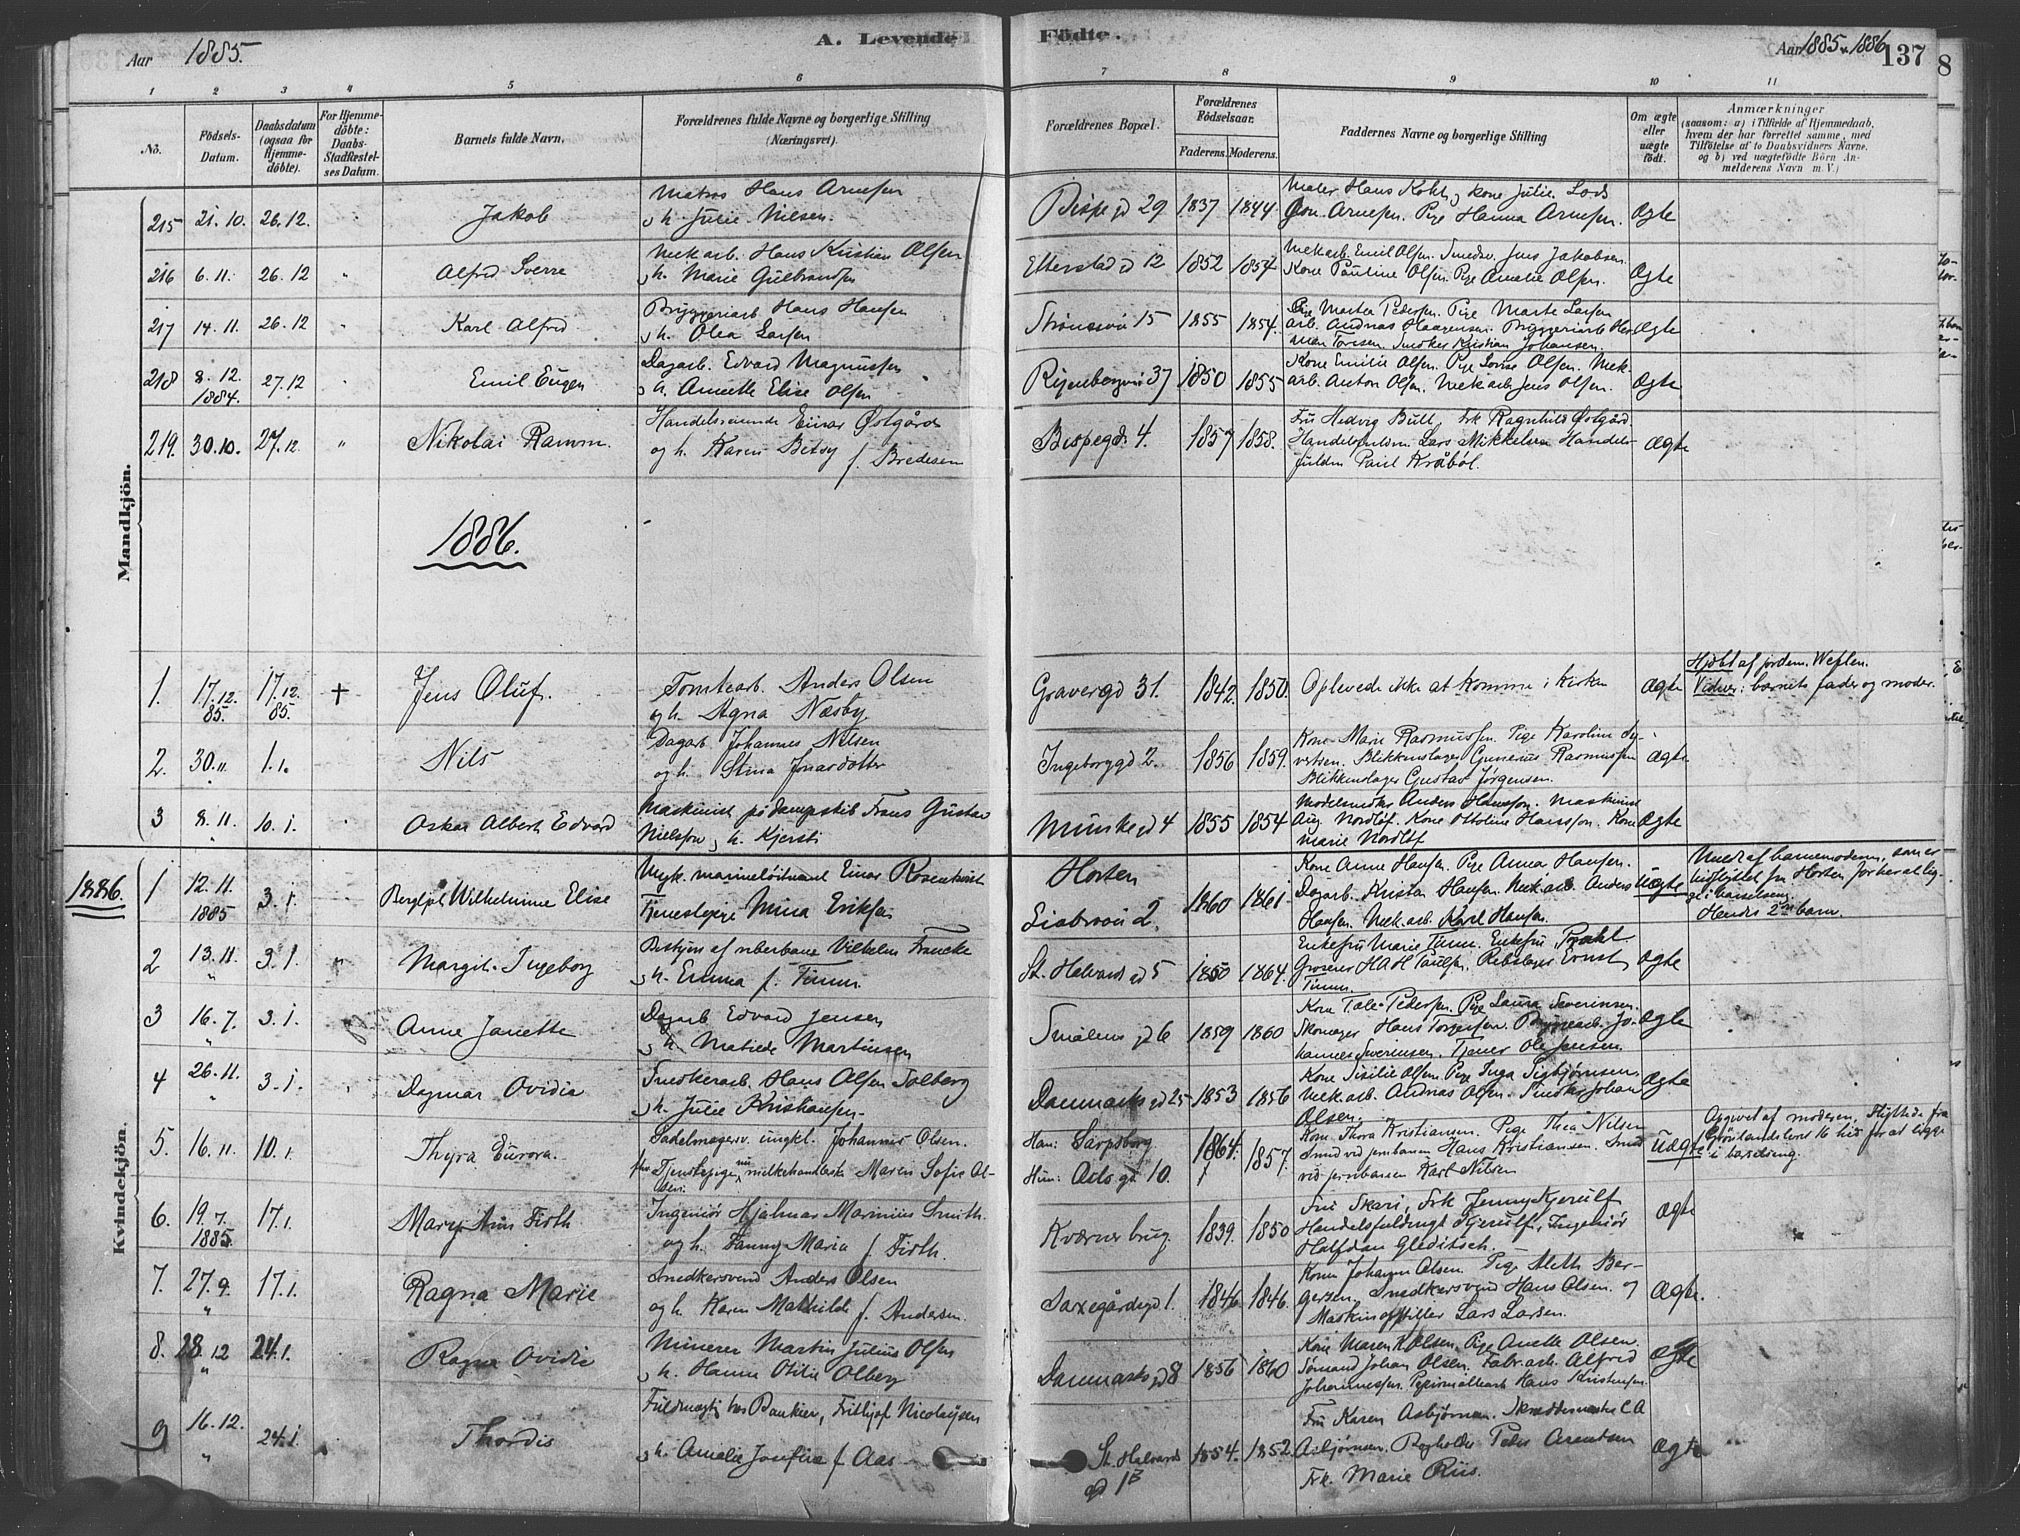 Aar 1885.
A. Levende Födte.
Aar 1885 & 1886
137
8
1 2 3 4 5 6 7 8 9 10 11
No.
Födsels-Datum.
Daabsdatum (ogsaa for Hjemme-döbte).
For Hjemme-döbte: Daabs-Stadfæstel-ses Datum.
Barnets fulde Navn.
Forældrenes fulde Navne og borgerlige Stilling (Næringsvei).
Forældrenes Bopæl.
Forældrenes Födselsaar.
Faderens. Moderens.
Faddernes Navne og borgerlige Stilling
Om ægte eller uægte födt.
Anmærkninger
(saasom: a) i Tilfælde af Hjemmedaab,
hvem der har forrettet samme, med
Tilföielse af to Daabsvidners Navne.
og b) ved uægtefödte Börn An-
melderens Navn m. V.)
Mandkjön.
215 21.10. 26.12. Jakob
Matros Hans Arnesen
h. Julie Nilsen.
Bispegd 29 1837 1844
Maler Hans Kohl, kone Julie
Arnesen. Pige Hanna Arnesen. Ægte
216 6.11. 26.12 " Alfred Sverre
Mekarb. Hans Kristian Olsen
h. Marie Gulbrandsen
Etterstadgd 12 1852 1854
Mekarb. Emil Olsen. Smedsv. Jens Jakobsen
Kone Pauline Olsen. Pige Amalie Olsen. Ægte
217 14.11. 26.12 " Karl Alfred
Bryggeriarb Hans Hansen
h. Olea Larsen
Strömsvei 15 1855 1854.
Pige Marta Pedersen. Pige Marte Larsen
arb. Andreas Haagensen. Bryggeriarb Her-
man Toresen. Snedker Kristian Johansen. Ægte
218 8.12. 1884. 27.12 Emil Eugen
Dagarb. Edvard Magnussen
h. Annette Elise Olsen
Ryenbergvei 37 1850 1855
Kone Emilie Olsen. Pige Lovise Olsen. Mek
arb. Anton Olsen. Mekarb Jens Olsen. Ægte
219. 30.10. 27.12. " Nikolai Ramm.
Handelsreisende Einar Østgård
og h. Karen Betsy f. Bredesen
Bispegd. 4. 1857 1858.
Fru Hedvig Bull Frk Ragnhild Østgård
Handelsfuldm. Lars Mikkelsen Handels-
fuldm Paul Kråböl. Ægte
1886.
1. 17.12. 85. 17.12. 85. + Jens Oluf.
Tomtearb. Anders Olsen
og h. Agna Næsby.
Gravergd 31. 1842. 1850.
Oplevede ikke at komme i kirken Ægte
Hjdbt af jordem. Weflen.
Vidner: barnets fader og moder.
2. 30.11. 1.1. Nils
Dagarb. Johannes Nilsen
og h. Stina Jonasdotter
Ingeborggd 2. 1856 1859.
Kone Marie Rasmussen. Pige Karoline Sy-
vertsen. Blikkenslager Gunerius Rasmussen
Blikkenslager Gustav Jørgensen. Ægte
3 8.11. 10.1. Oskar Albert Edvard
Maskinist på dampskib Frans Gustav
Nielsson, h. Kjersti
Munkegd 4 1855 1854
Modelsnedker Anders Hansson. Maskinist
Aug. Nordlöf. Kone Ottoline Hansson. Kone
Marie Nordlöf Ægte
1886.
Kvindekjön.
1 12.11. 1885 3.1. Bergljot Wilhelmine Elise
Ugk. marinelöitnant Einar Rosenkvist
Tjenestepige Mina Eriksen
Horten
Liabroveien 2. 1860 1861
Kone Anne Hansen. Pige Anna Hansen.
Dagarb. Kristen Hansen. Mekarb. Anders
Hansen. Mekarb. Karl Hansen. Uægte
Meldt af barnemoderen, som er
indflyttet fra Horten for her at lig-
ge i barselseng.
Hendes 2det barn.
2 13.11. " 3.1. " Margit Ingeborg
Bestyrer af reberbane Vilhelm Francke
h. Emma f. Timm.
St. Halvards gd 5 1850 1864.
Enkefru Marie Timm. Enkefru
Grosserer H A H Paulsen. Rebslager Ernst
Timm. Ægte
3 16.7. " 3.1. Anne Janette
Dagarb Edvard Jensen
h. Matilde Martinsen
Smålensgd 6 1859 1860
Kone Tale Pedersen. Pige Laura Severinsen.
Skomager Hans Torgersen. Bryggearb. Jo-
hannes Severinsen. Tjener Ole Jensen. Ægte
4 26.11. " 3.1. Dagmar Ovidia
Snedkerarb. Hans Olsen Solberg
h. Julie Kristiansen
Danmarksgd 25 1853 1856
Kone Sisilie Olsen. Pige Inga Sigbjørnsen.
Mekarb. Andreas Olsen. Snedker Johan
Olsen. Ægte
5. 16.11. 10.1. Thyra Eurora.
Sadelmagersv. ungkl. Johannes Olsen.
Tjenestepige, nu melkehandlerske Maren Sofie Ol-
sen.
Han: Sarpsborg
Hun: Oslogd. 10. 1864. 1857.
Kone Thora Kristiansen. Pige Thea Nilsen
Smed ved jernbanen Hans Kristiansen. Smed
ved jernbanen Karl Nilsen Uægte
Opgivet af moderen, flyttede fra
Grönlandsleret 16 hid for at ligge
i barselseng.
6. 19.7. 1885. 17.1. Mary Ann Firth
Ingeniør Hjalmar Marinius Smith
og h. Fanny Maria f. Firth.
Kværnerbrug. 1839. 1850
Fru Skari, Frk Jenny Kjerulf
Handelsfuldmgt Kjerulf, Ingeniør
Halfdan Gleditsch. Ægte
7. 27.9. " 17.1. Ragna Marie
Snedkersvend Anders Olsen
og h. Karen Mathilde f. Andersen.
Saxegårdsgd 1. 1846 1846.
Kone Johanne Olsen. Pige Aleth Ber-
gersen, Snedkersvend Hans Olsen. og
Maskinopstiller Lars Larsen. Ægte.
8. 28.12 " 24.1. Ragna Ovidia
Minerer Martin Julius Olsen
h. Hanne Otilie Olberg
Danmarksgd 8 1856 1860
Kone Maren Olsen. Pige Anette Olsen
Sømand Johan Olsen. Fabr.arb. Alfred
Johannessen. Hans Kristensen Ægte
9 16.12. " 24.1. Thordis
Fuldmægtig hos Bankier, Fritjof Nicolaysen
h. Amalie Josefine f Aas
St. Halvards gd 1B 1854. 1852.
Fru Karen Asbjørnsen. Skreddermester C A
Asbjørnsen. Bogholder Peder Arentsen
Frk. Marie Riis. Ægte